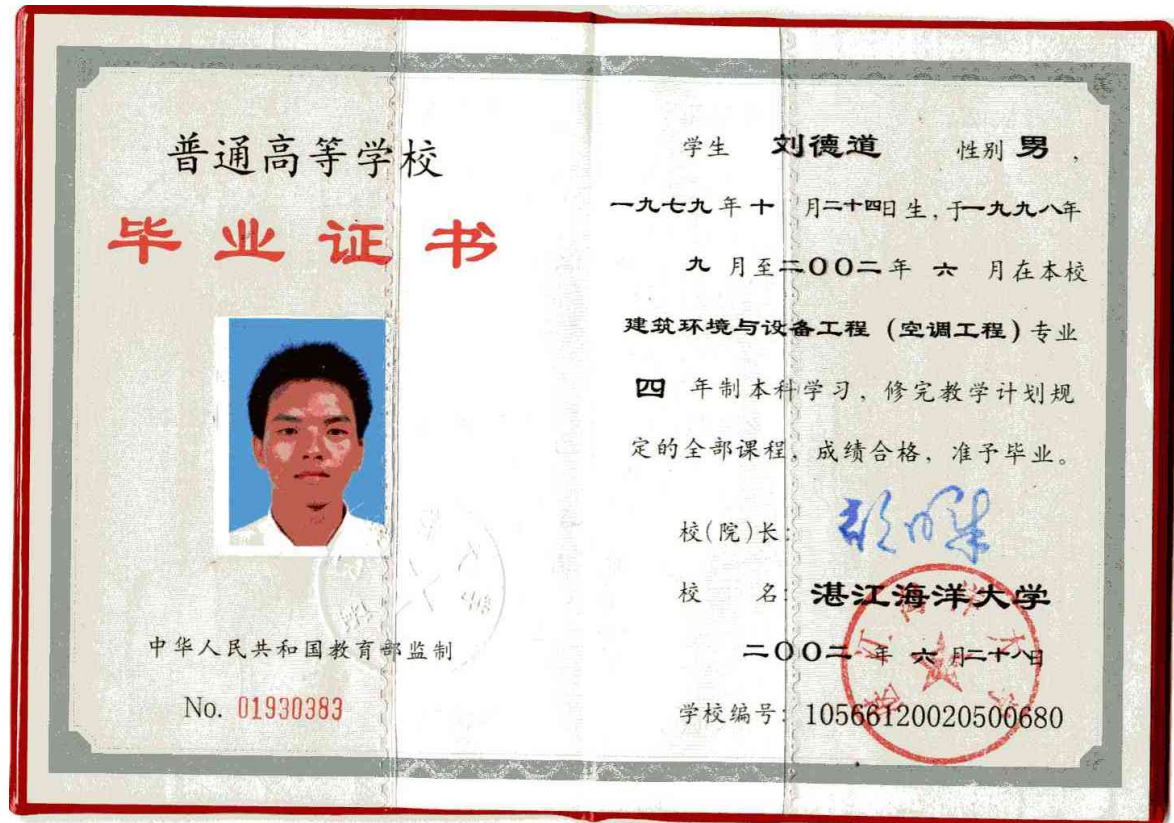 普通高等学校
毕业证书
中华人民共和国教育部监制
No. 01930383
学生 刘德道 性别 男，
一九七九年十 月二十四日生，于一九九八年
九 月至二〇〇二年 六 月在本校
建筑环境与设备工程（空调工程）专业
四 年制本科学习，修完教学计划规
定的全部课程，成绩合格，准予毕业。
校(院)长：
校 名：湛江海洋大学
二〇〇二年 六 月二十八日
学校编号：10566120020500680
湛江海洋大学